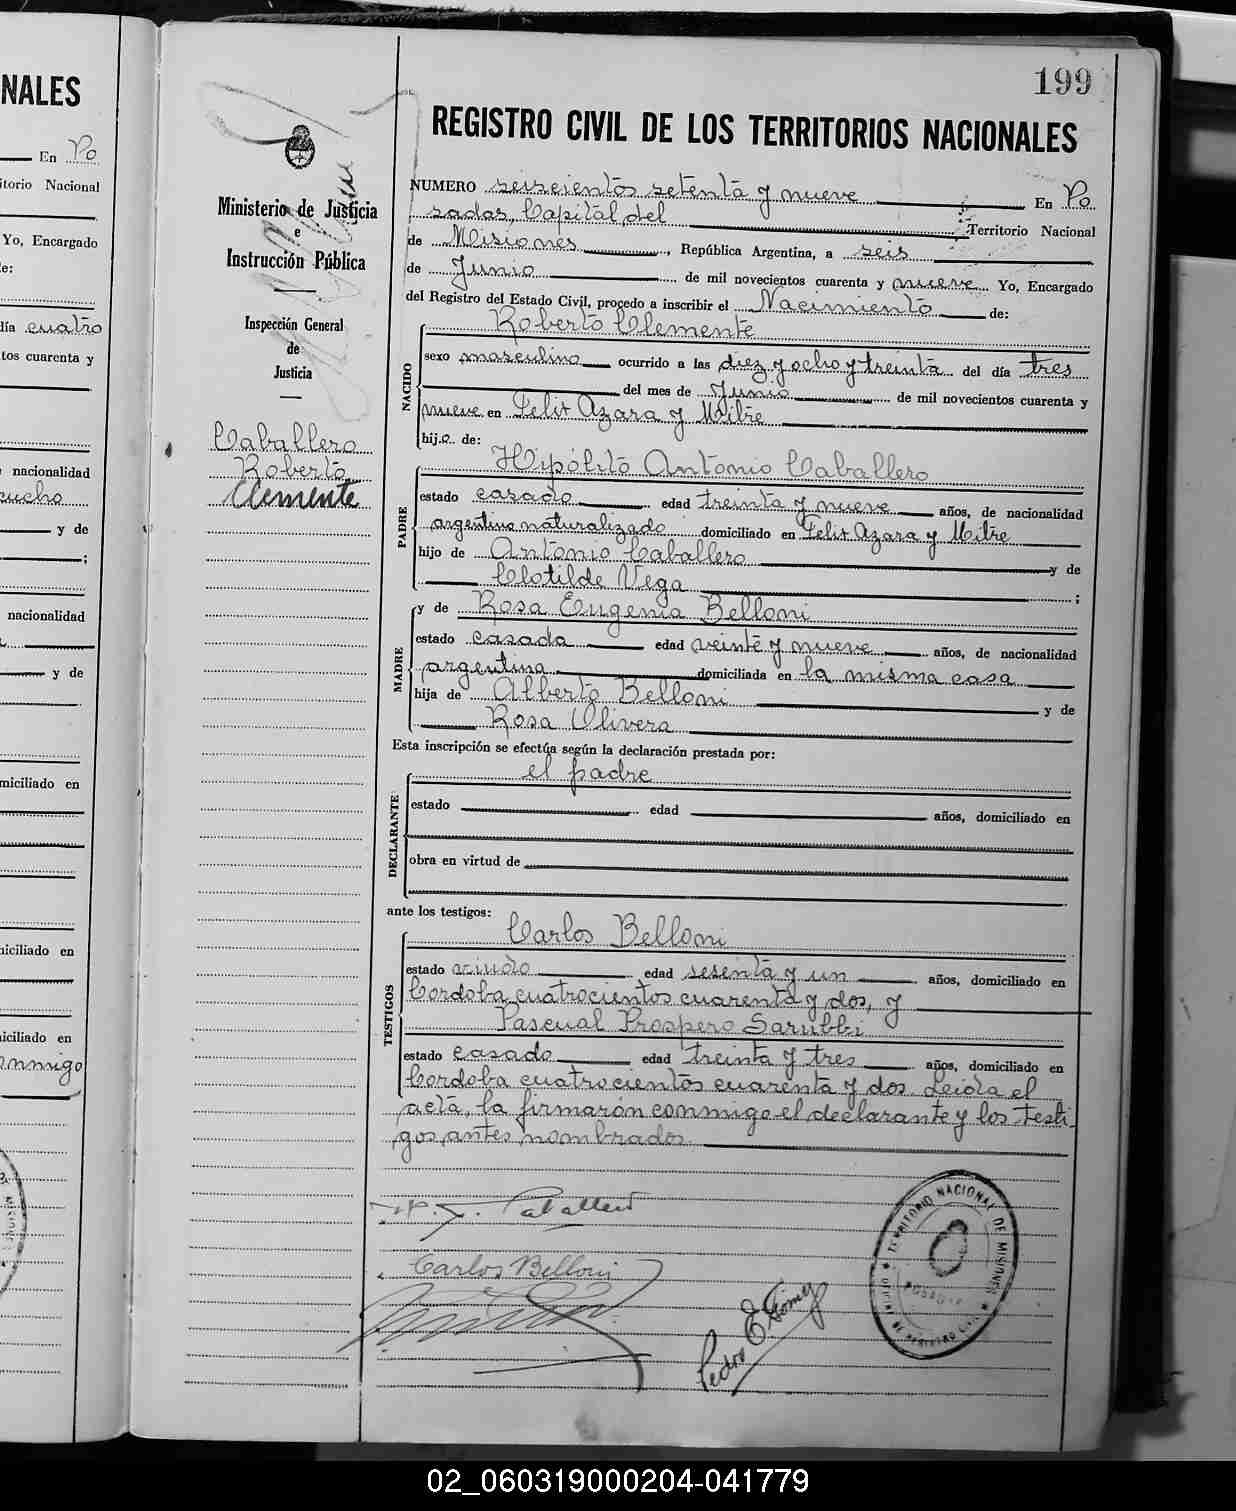 199
REGISTRO CIVIL DE LOS TERRITORIOS NACIONALES
Ministerio de Justicia
e
Instrucción Pública
Inspección General
de
Justicia
Caballero
Roberto
Clemente
NUMERO seiscientos setenta y nueve En Po
sadas, Capital del Territorio Nacional
de Misiones, República Argentina, a seis
de Junio de mil novecientos cuarenta y nueve Yo, Encargado
del Registro del Estado Civil, procedo a inscribir el Nacimiento de:
NACIDO
Roberto Clemente
sexo masculino ocurrido a las diez y ocho y treinta del día tres
del mes de Junio de mil novecientos cuarenta y
nueve en Felix Azara y Mitre
hijo de:
PADRE
Hipólito Antonio Caballero
estado casado edad treinta y nueve años, de nacionalidad
argentino naturalizado domiciliado en Felix Azara y Mitre
hijo de Antonio Caballero y de
Clotilde Vega ;
MADRE
y de Rosa Eugenia Belloni
estado casada edad veinte y nueve años, de nacionalidad
argentina domiciliada en la misma casa
hija de Alberto Belloni y de
Rosa Olivera
Esta inscripción se efectúa según la declaración prestada por:
DECLARANTE
el padre
estado edad años, domiciliado en
obra en virtud de
ante los testigos:
TESTIGOS
Carlos Belloni
estado viudo edad sesenta y un años, domiciliado en
Cordoba cuatrocientos cuarenta y dos, y
Pascual Prospero Sarubbi
estado casado edad treinta y tres años, domiciliado en
Cordoba cuatrocientos cuarenta y dos. Leida el
acta, la firmarón conmigo el declarante y los testi
gos antes nombrados.
Caballero
Carlos Belloni
Pedro E. Gómez
TERRITORIO NACIONAL DE MISIONES
POSADAS
NALES
En Po
itorio Nacional
Yo, Encargado
día cuatro
tos cuarenta y
nacionalidad
y de
;
nacionalidad
y de
miciliado en
iciliado en
iciliado en
onmigo
02_060319000204-041779